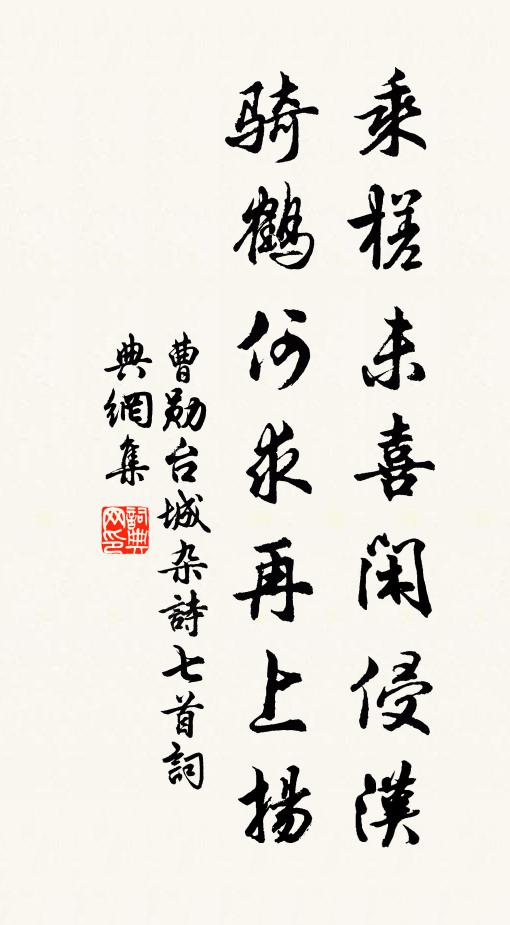 乘槎未喜闲侵漢
骑鶴何求再上揚
曹勋台城杂詩七首詞
典網集
詞典网印